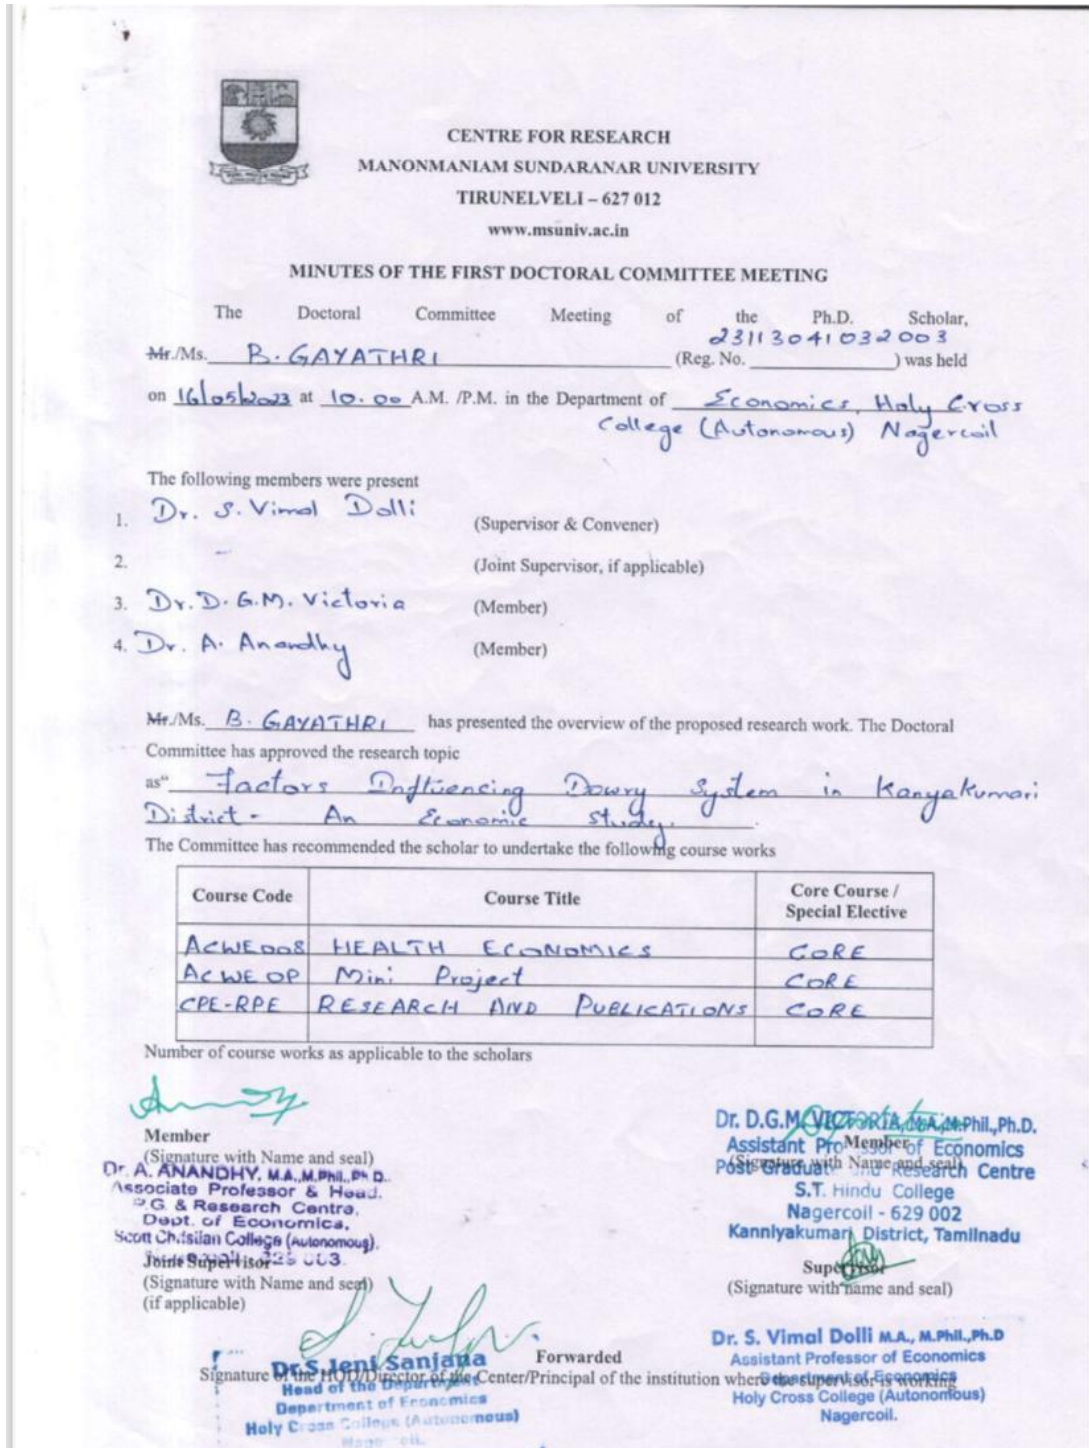 CENTRE FOR RESEARCH
MANONMANIAM SUNDARANAR UNIVERSITY
TIRUNELVELI – 627 012
www.msuniv.ac.in
MINUTES OF THE FIRST DOCTORAL COMMITTEE MEETING
The Doctoral Committee Meeting of the Ph.D. Scholar,
Mr./Ms. B. GAYATHRI (Reg. No. 23113041032003 ) was held
on 16/05/2023 at 10.00 A.M. /P.M. in the Department of Economics, Holy Cross
College (Autonomous) Nagercoil
The following members were present
1. Dr. S. Vimal Dolli (Supervisor & Convener)
2. - (Joint Supervisor, if applicable)
3. Dr. D. G.M. Victoria (Member)
4. Dr. A. Anandhy (Member)
Mr./Ms. B. GAYATHRI has presented the overview of the proposed research work. The Doctoral
Committee has approved the research topic
as“ Factors Influencing Dowry System in Kanyakumari
District - An Economic Study.
The Committee has recommended the scholar to undertake the following course works
Course Code Course Title Core Course / Special Elective
ACWE008 HEALTH ECONOMICS CORE
ACWEOP Mini Project CORE
CPE-RPE RESEARCH AND PUBLICATIONS CORE
Number of course works as applicable to the scholars
Member
(Signature with Name and seal)
Dr. A. ANANDHY, M.A.,M.Phil.,Ph D..
Associate Professor & Head.
P.G. & Research Centre,
Dept. of Economics,
Scott Christian College (Autonomous).
Joint Supervisor
(Signature with Name and seal)
(if applicable)
Dr. D.G.M. VICTORIA, M.A.,M.Phil.,Ph.D.
Assistant Professor of Economics
Member
(Signature with Name and seal)
Post Graduate and Research Centre
S.T. Hindu College
Nagercoil - 629 002
Kanniyakumari District, Tamilnadu
Supervisor
(Signature with name and seal)
Dr. S. Vimal Dolli M.A., M.Phil.,Ph.D
Assistant Professor of Economics
Department of Economics
Holy Cross College (Autonomous)
Nagercoil.
Forwarded
Signature of the HOD/Director of the Center/Principal of the institution where the supervisor is working
Dr.S.Jeni Sanjana
Head of the Department
Department of Economics
Holy Cross College (Autonomous)